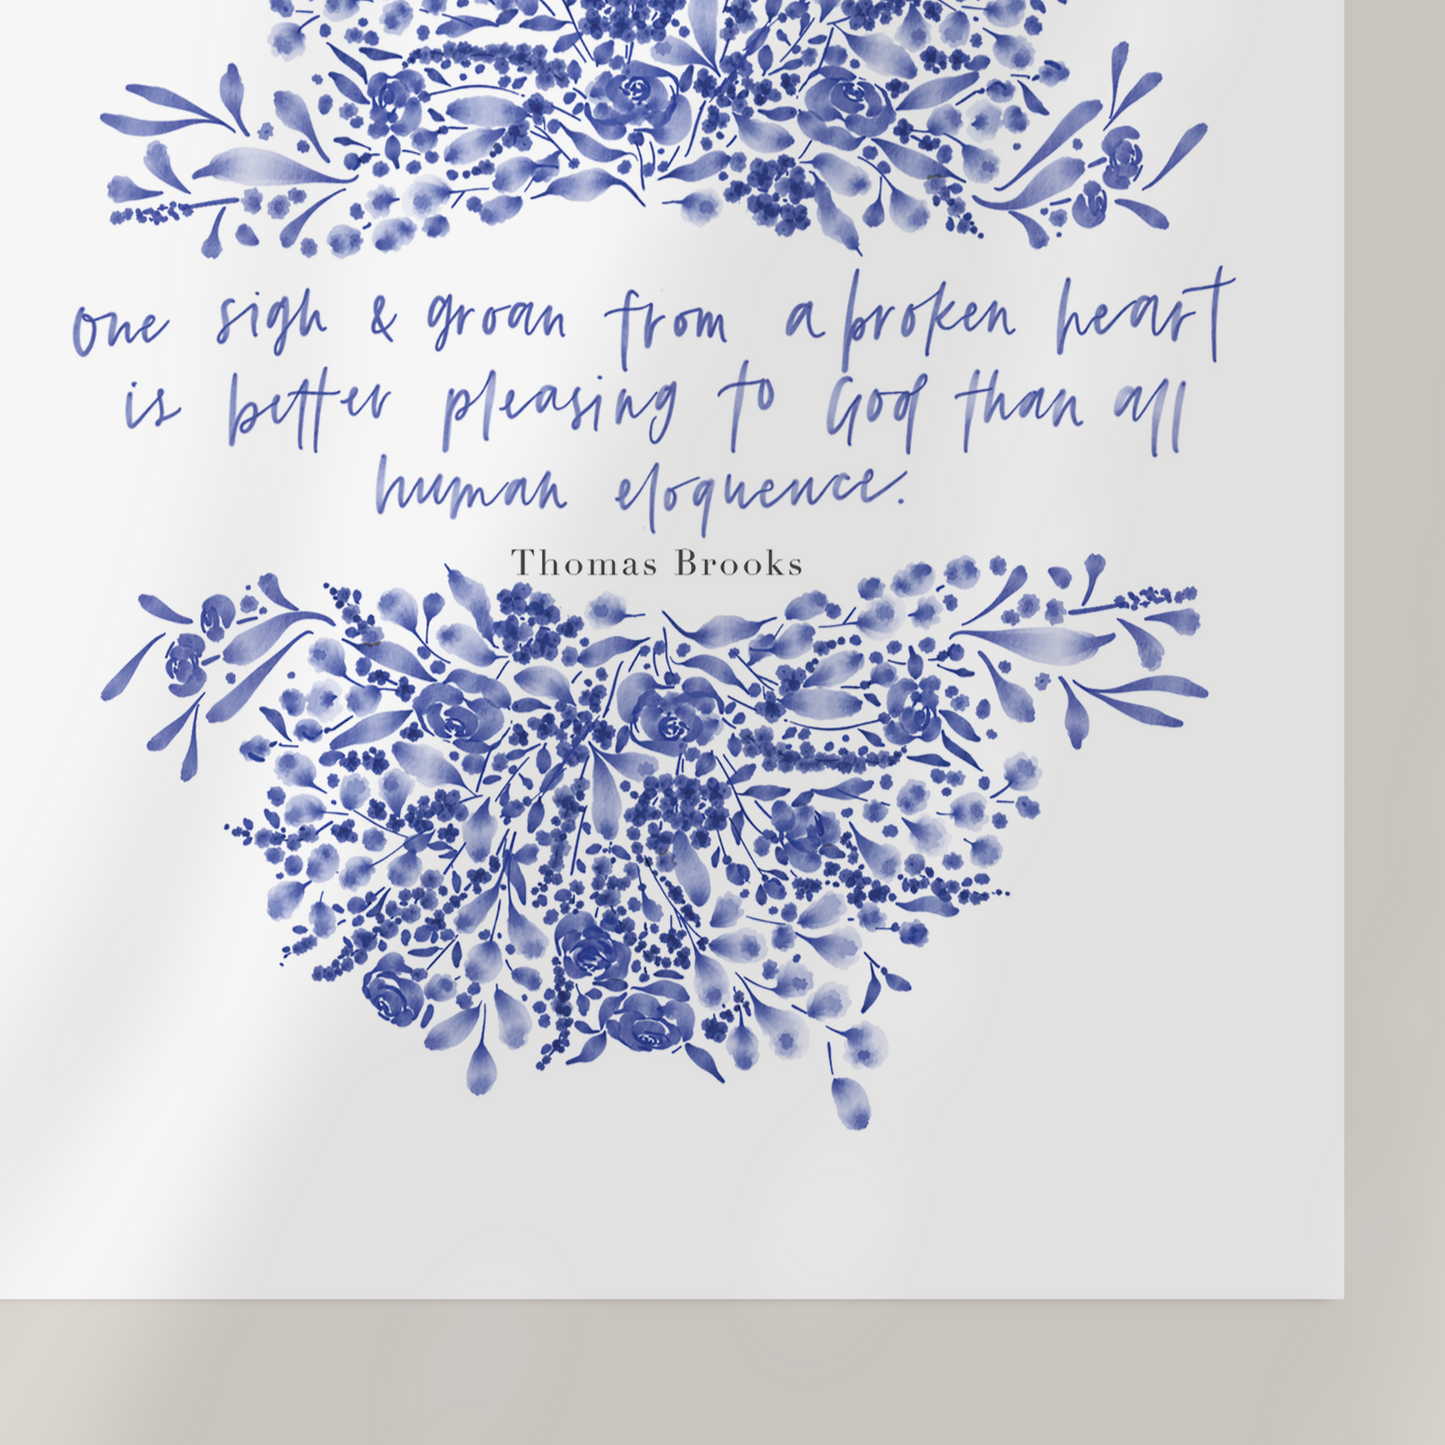 one sigh & groan from a broken heart
is better pleasing to God than all
human eloquence.
Thomas Brooks